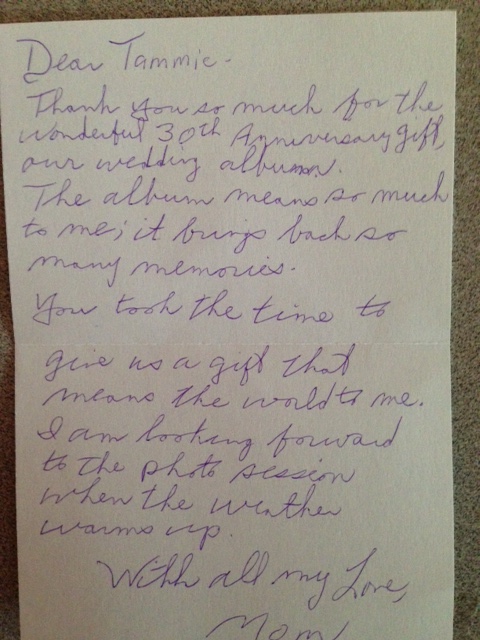 Dear Tammie-
Thank you so much for the
wonderful 30th Anniversary gift,
our wedding album.
The album means so much
to me; it brings back so
many memories.
You took the time to
give us a gift that
means the world to me.
I am looking forward
to the photo session
when the weather
warms up.
With all my Love,
Mom